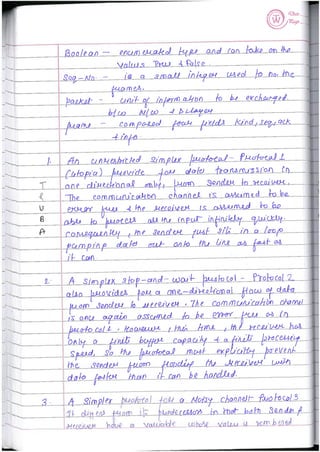 Boolean — enumerated type and can take on the
values True & False.
Seq-No — is a small integer used to no. the
frames.
packet - unit of information to be exchanged
b/w N/w & D L layer
frame - composed four fields kind, seq, ack
& info
1. An unrestricted simplex protocol - Protocol 1
(utopia) provide for data transmission in
one directional only, from sender to receiver.
The communication channel is assumed to be
error free & the receiver is assumed to be
able to process all the input infinitely quickly.
consequently, the sender just sits in a loop
pumping data out onto the line as fast as
it can
T
U
B
A
2. A simplex stop-and-wait protocol - Protocol 2
also provides for a one-directional flow of data
from sender to receiver. The communication channel
is once again assumed to be error free as in
protocol 1. However, this time, the receiver has
only a finite buffer capacity & a finite processing
speed, so the protocol must explicitly prevent
the sender from flooding the receiver with
data faster than it can be handled.
3. A simplex protocol for a Noisy channel: Protocol 3
It differs from its predecessors in that both sender &
receiver have a variable whose value is remembered